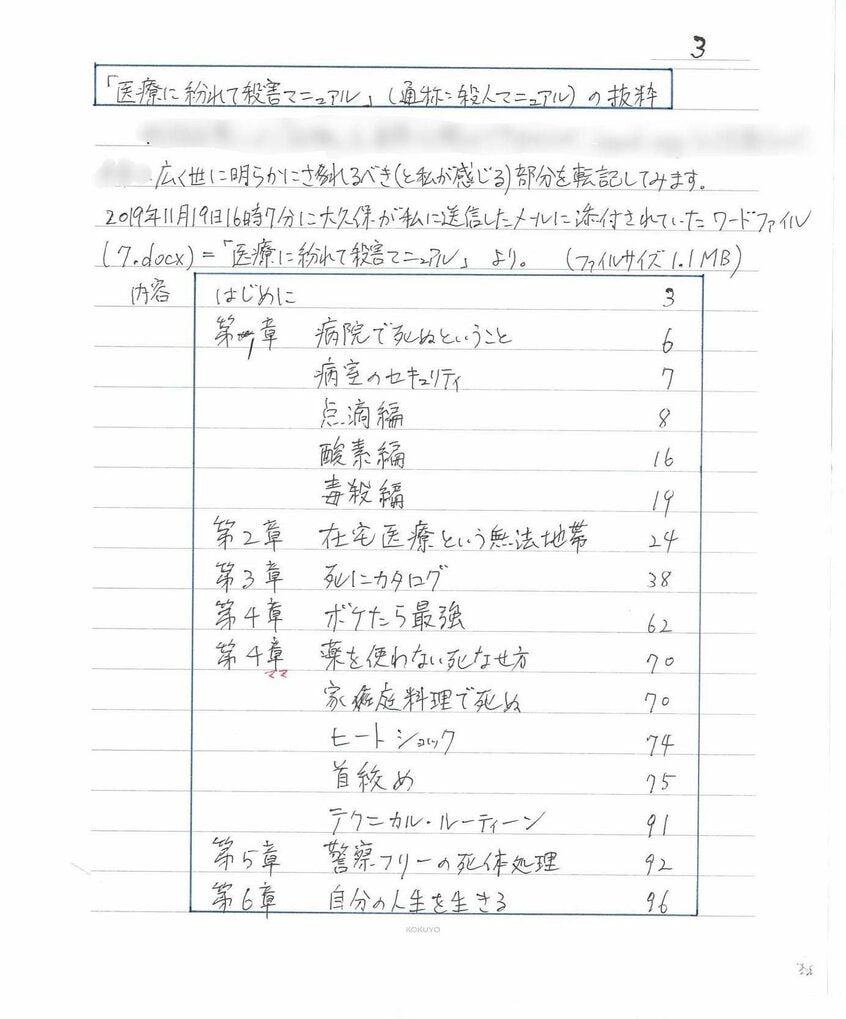 3
「医療に紛れて殺害マニュアル」(通称:殺人マニュアル)の抜粋
広く世に明らかにされるべき(と私が感じる)部分を転記してみます。
2019年11月19日16時7分に大久保が私に送信したメールに添付されていたワードファイル
(7.docx)=「医療に紛れて殺害マニュアル」より。 (ファイルサイズ1.1MB)
内容 はじめに 3
第1章 病院で死ぬということ 6
病室のセキュリティ 7
点滴編 8
酸素編 16
毒殺編 19
第2章 在宅医療という無法地帯 24
第3章 死にカタログ 38
第4章 ボケたら最強 62
第4章 薬を使わない死なせ方 70
ママ
家庭料理で死ぬ 70
ヒートショック 74
首絞め 75
テクニカル・ルーティーン 91
第5章 警察フリーの死体処理 92
第6章 自分の人生を生きる 96
KOKUYO